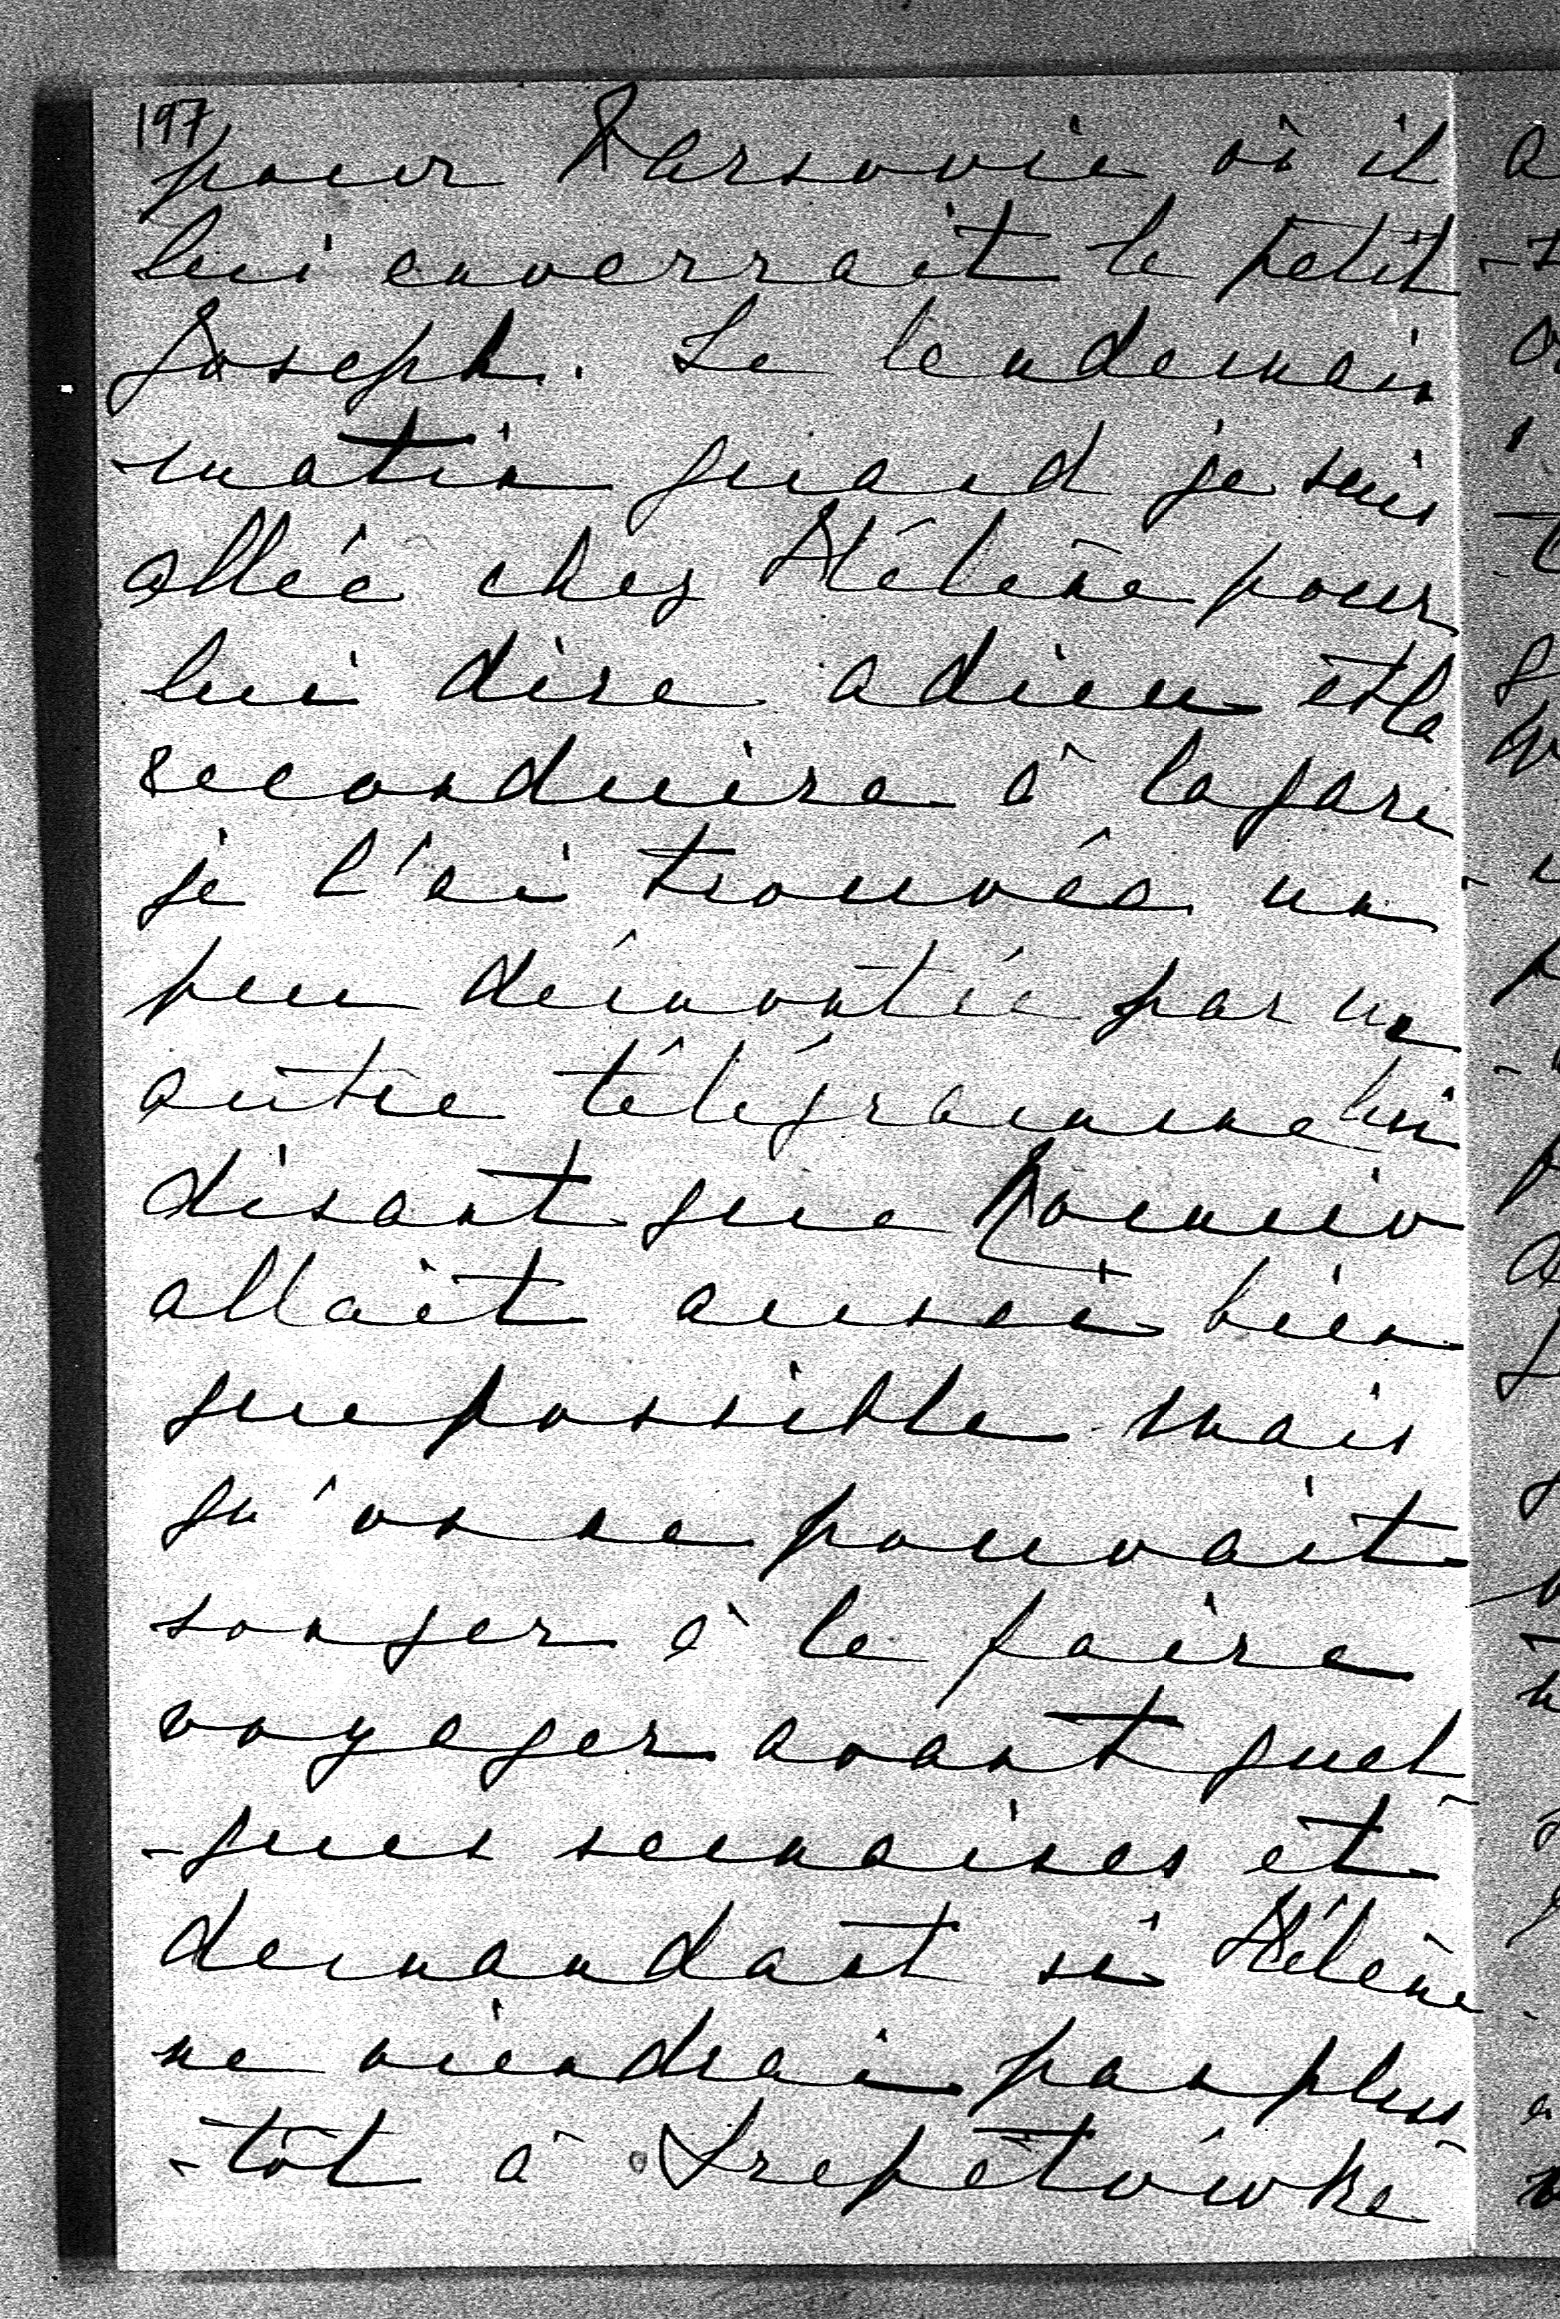 197
pour Varsovie où il
lui enverrait le petit
Joseph. Le lendemain
matin quand je suis
allée chez Hélène pour
lui dire adieu et la
reconduire à la gare
je l'ai trouvée un
peu démontée par un
autre télégramme lui
disant que
allait aussi bien
que possible mais
qu'on ne pouvait
songer à le faire
voyager avant quel-
-ques semaines et
demandant si Hélène
ne viendrai pas plus-
-tôt à